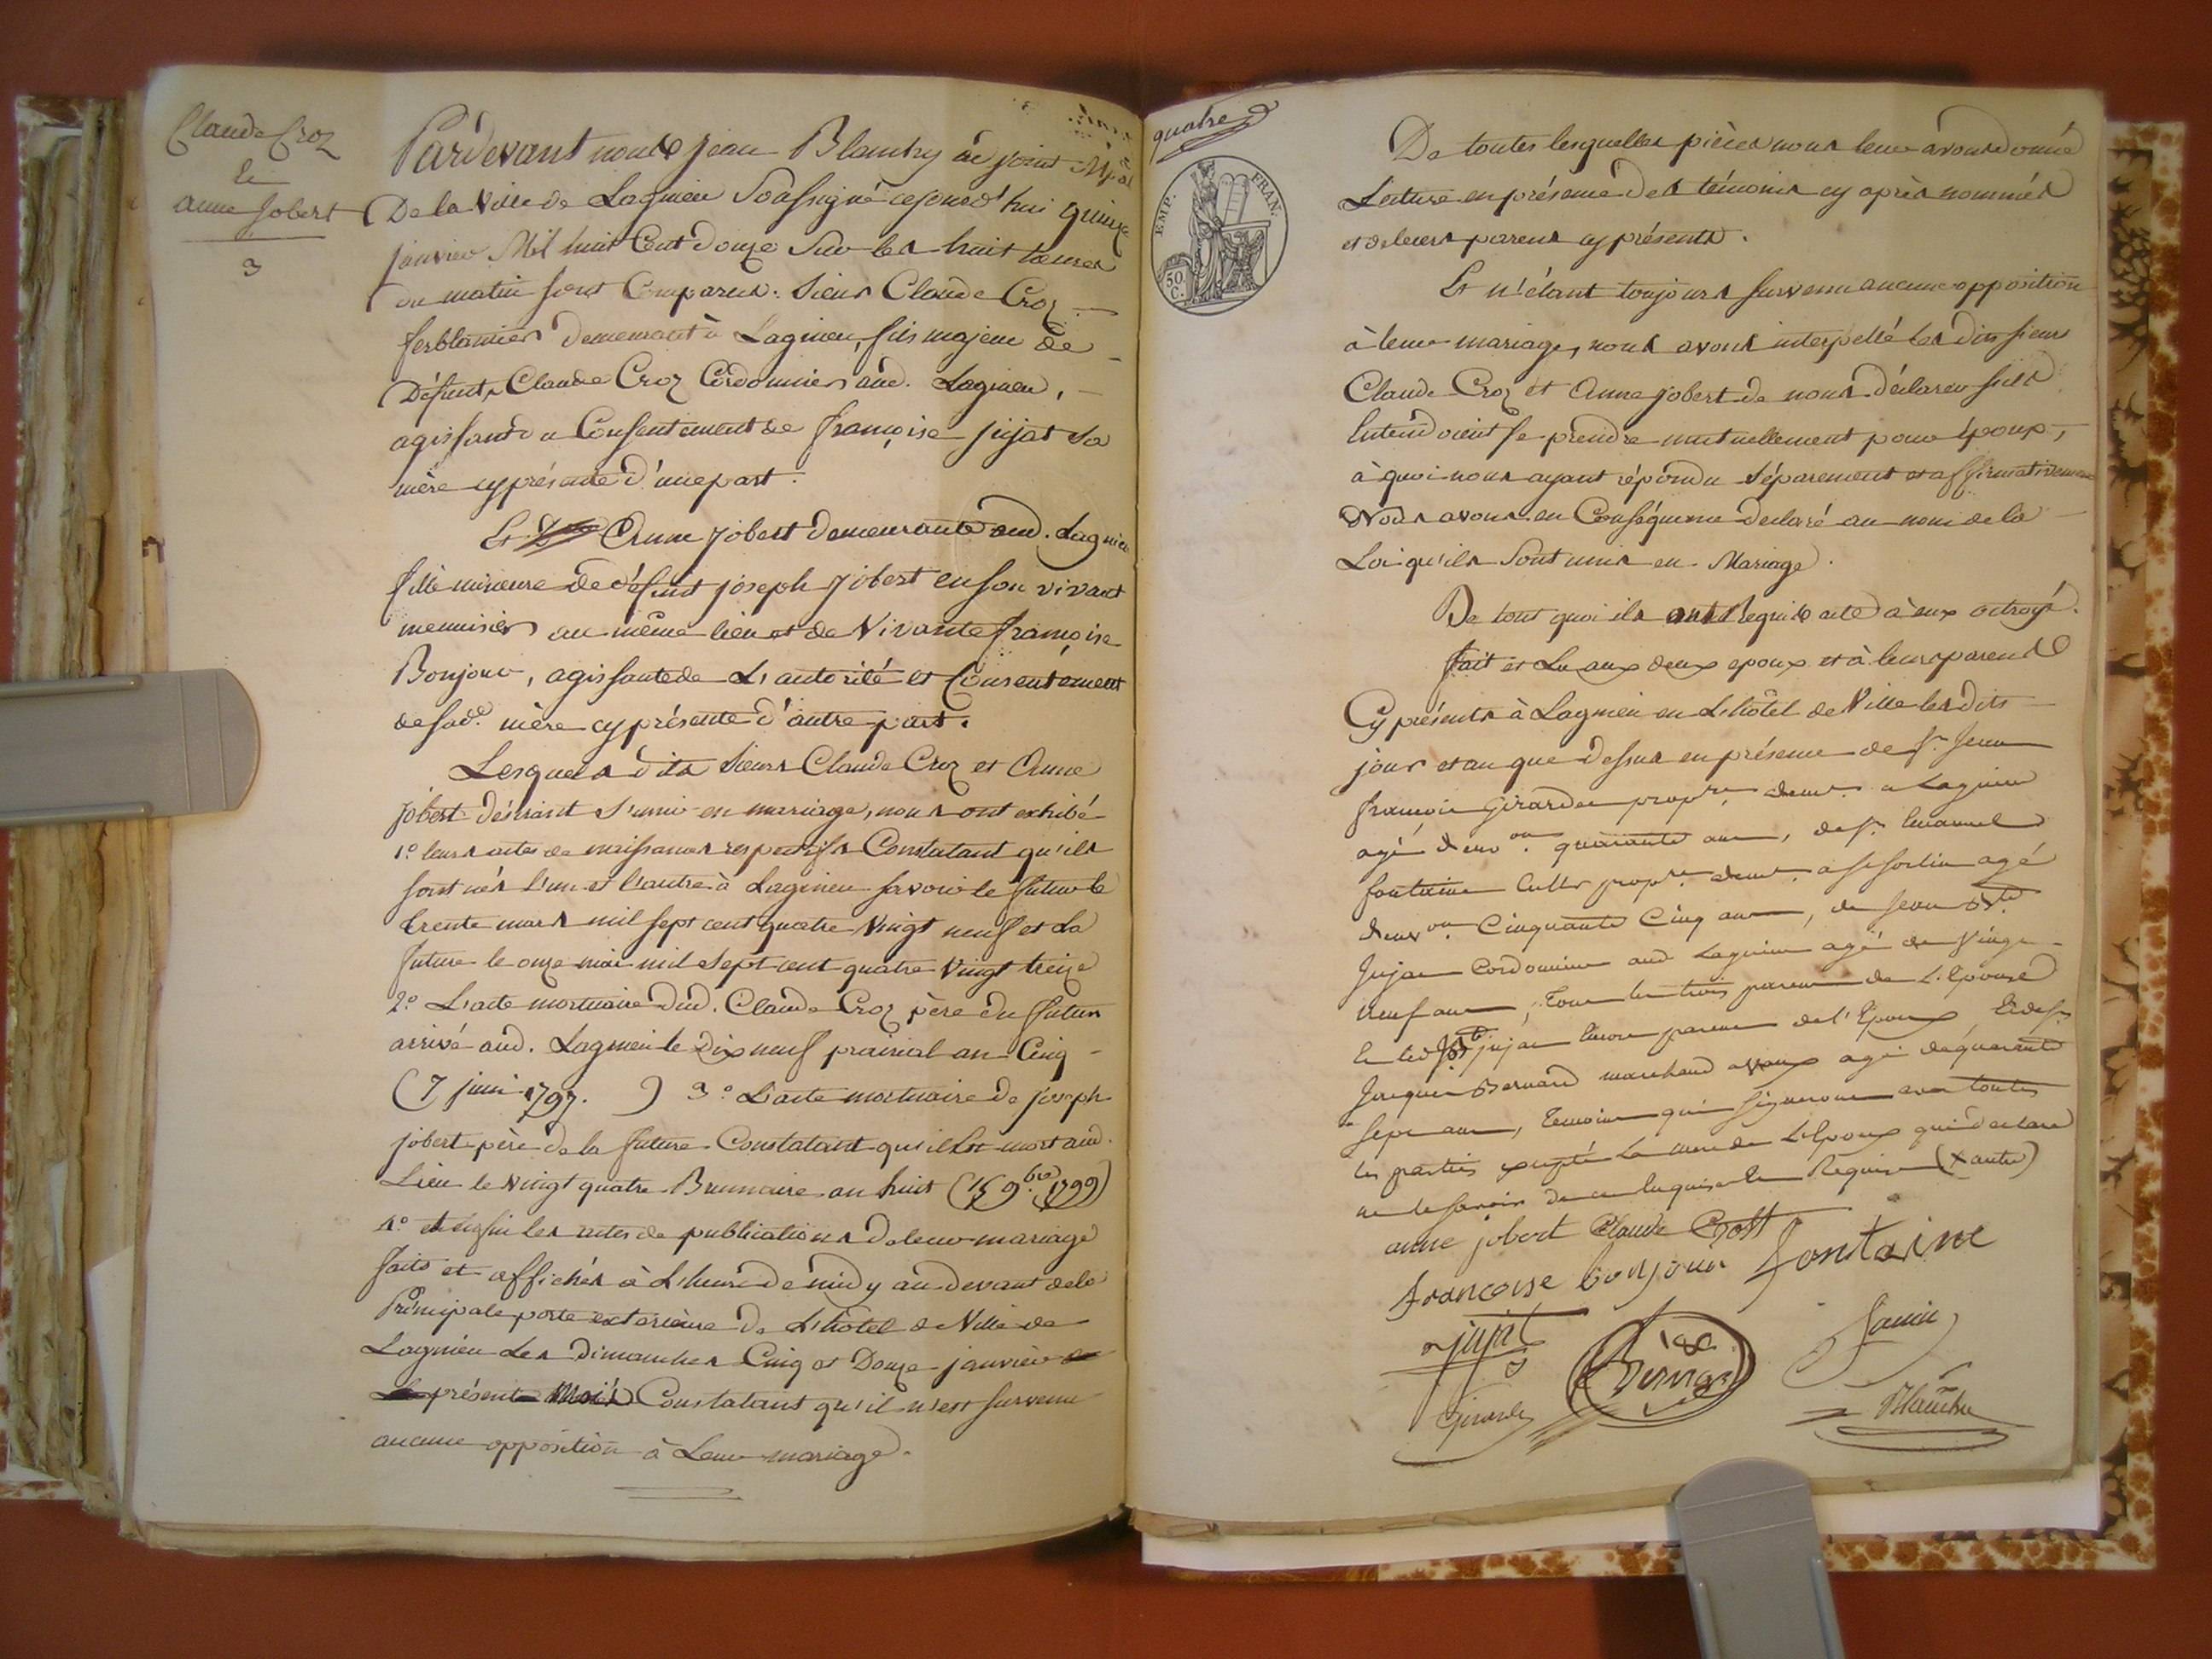 Claude Croz
Et
anne Jobert
3
Pardevant nous Jean Blanchy adjoint Mpal
De la Ville de Lagnieu Soussigné cejourd'hui quinze
janvier Mil huit Cent Douze Sur les huit heures
du matin sont Comparus: Sieur Claude Croz
ferblantier demeurant à Lagnieu, fils majeur de
Défunt Claude Croz Cordonnier aud. Lagnieu,
agissant du Consentement de françoise jujat sa
mère cy présente d'une part.
Et Anne jobert demeurante aud. Lagnieu
fille mineure de défunt joseph jobert en son vivant
menuisier au même lieu et de Vivante françoise
Bonjour, agissante de L'autorité et Consentement
de sade. mère cy présente d'autre part.
Lesquels dits Sieurs Claude Croz et Anne
jobert désirant s'unir en mariage, nous ont exhibé
1o. leurs actes de naissances respectifs Constatant qu'ils
sont nés l'un et l'autre à Lagnieu savoir le futur le
trente mars mil sept cent quatre Vingt neuf et La
future le onze mai mil sept cent quatre Vingt treize
2o. L'acte mortuaire dud. Claude Croz père du futur
arrivé aud. Lagnieu le dix neuf prairial an Cinq
(7 juin 1797. ) 3o. L'acte mortuaire de joseph
jobert père de la future Constatant qu'il est mort aud.
Lieu le vingt quatre Brumaire an huit (15 9bre. 1799)
4o. et enfin les actes de publications de leur mariage
faits et affichés à L'heure de midy au devant de la
Principale porte exterieure de L'hôtel de Ville de
Lagnieu Les Dimanches Cinq et Douze janvier
présent Mois Constatant qu'il n'est survenu
aucune opposition à Leur mariage.
quatre
EMP. FRAN.
50 C.
De toutes lesquelles pièces nous leur avons donné
Lecture en présence des témoins cy après nommés
et de leurs parens cy présents.
Et n'étant toujours survenu aucune opposition
à leur mariage, nous avons interpellé les dits sieurs
Claude Croz et Anne jobert de nous déclarer s'ils
Entendoient se prendre mutuellement pour époux,
à quoi nous ayant répondu séparement et affirmativement
Nous avons en Conséquence declaré au nom de la
Loi qu'ils sont unis en Mariage.
De tout quoi ils ont Requis acte à eux octroyé.
fait et Lu aux deux epoux et à leurs parens
Cy présents à Lagnieu en L'hôtel de Ville les dits
jour et an que dessus en présence de Sr. Jean
françois Girardet proptre. demt. a Lagnieu
agé denvon. quarante ans, de Sr. Emanuel
fontaine Cultr proptre. demt. a agé
denvon Cinquante Cinq ans, de jean Bte.
Jujat Cordonnier aud Lagnieu agé de Vingt
neuf ans, tous les trois parens de L'Epouse
Et led jujat Encore parent de l'Epoux Et de Sr.
Jacques Bernard marchand agé de quarante
sept ans, temoins qui signeront avec toutes
les parties excepté La mere de L'Epoux qui declare
ne le savoir de ce Enquise Requise
anne jobert Claude Crost
francoise bonjour fontaine
jujat
Bernard
Janin
Girardet
Blanchy